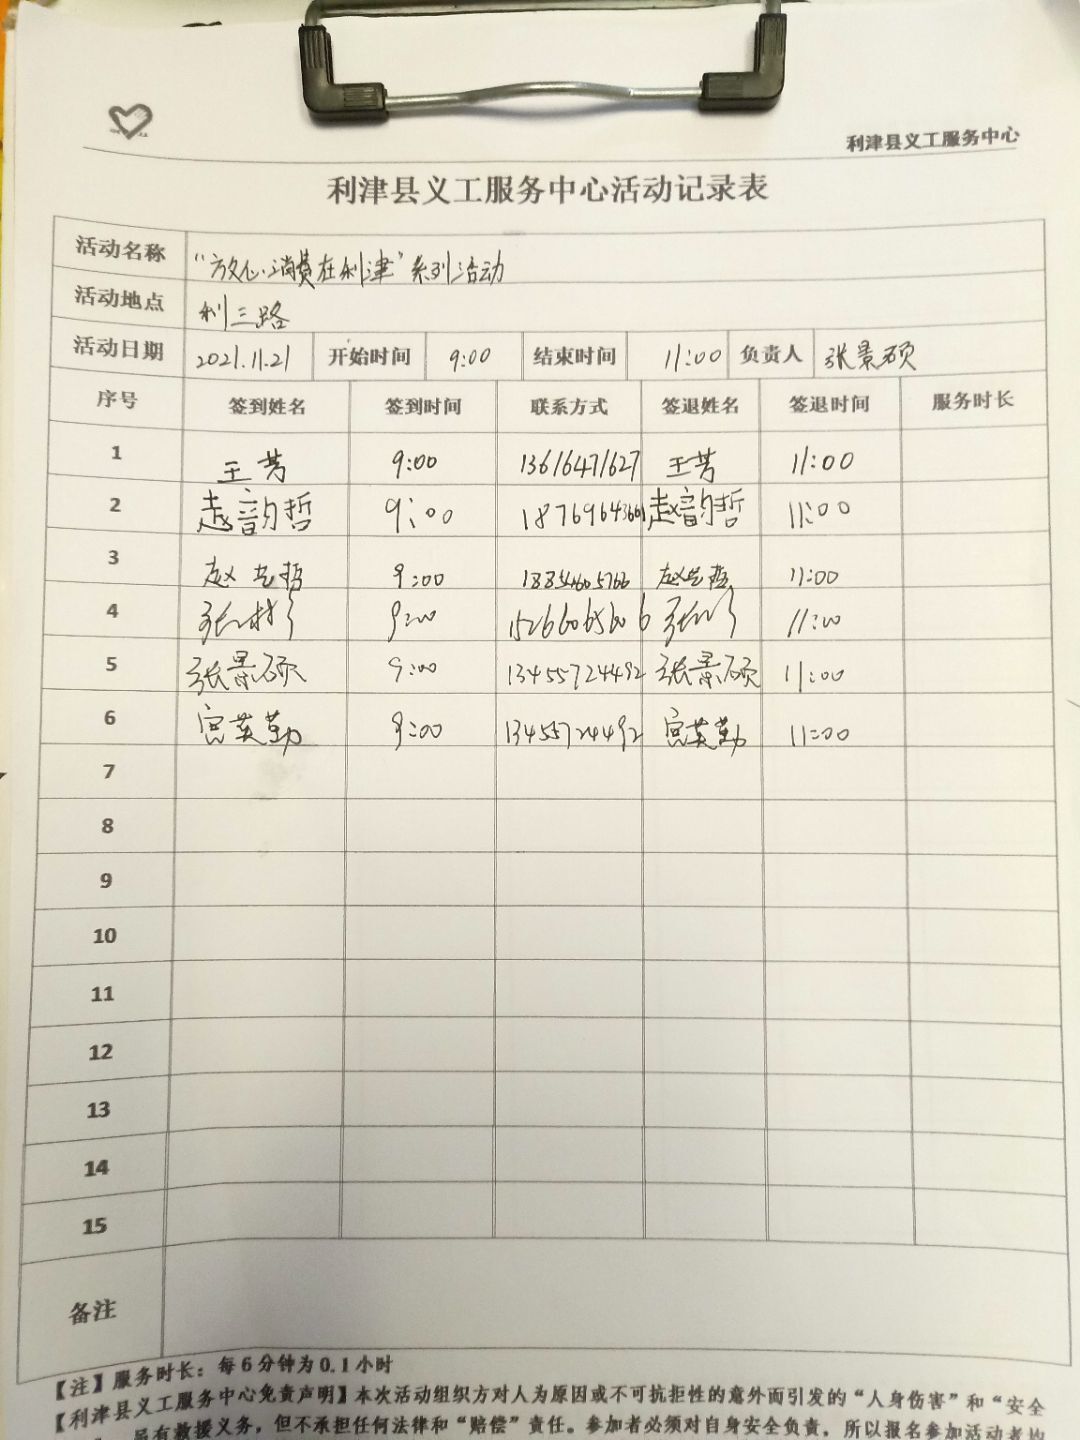 利津县义工服务中心
利津县义工服务中心活动记录表
活动名称 “放心消费在利津”系列活动
活动地点 利三路
活动日期 2021.11.21 开始时间 9:00 结束时间 11:00 负责人 张景硕
序号 签到姓名 签到时间 联系方式 签退姓名 签退时间 服务时长
1 王芳 9:00 13616471627 王芳 11:00
2 赵韵哲 9:00 赵韵哲 11:00
3 9:00 11:00
4 9:00 15266065606 11:00
5 张景硕 9:00 13455724492 张景硕 11:00
6 宫英勤 9:00 13455724492 宫英勤 11:00
7
8
9
10
11
12
13
14
15
备注
【注】服务时长：每6分钟为0.1小时
【利津县义工服务中心免责声明】本次活动组织方对人为原因或不可抗拒性的意外而引发的“人身伤害”和“安全
虽有救援义务，但不承担任何法律和“赔偿”责任。参加者必须对自身安全负责，所以报名参加活动者均